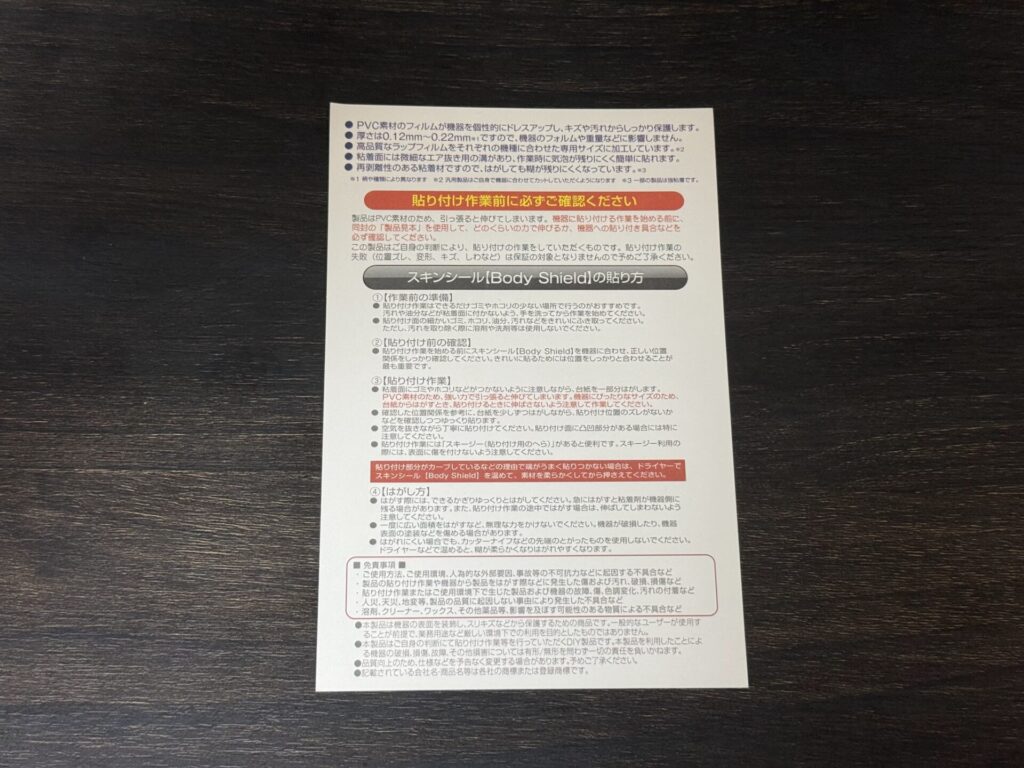 ● PVC素材のフィルムが機器を個性的にドレスアップし、キズや汚れからしっかり保護します。
● 厚さは0.12mm～0.22mm※1ですので、機器のフォルムや重量などに影響しません。
● 高品質なラップフィルムをそれぞれの機種に合わせた専用サイズに加工しています。※2
● 粘着面には微細なエア抜き用の溝があり、作業時に気泡が残りにくく簡単に貼れます。
● 再剥離性のある粘着材ですので、はがしても糊が残りにくくなっています。※3
※1 柄や種類により異なります ※2 汎用製品はご自身で機器に合わせてカットしていただくようになります ※3 一部の製品は強粘着です。
貼り付け作業前に必ずご確認ください
製品はPVC素材のため、引っ張ると伸びてしまいます。機器に貼り付ける作業を始める前に、
同封の「製品見本」を使用して、どのくらいの力で伸びるか、機器への貼り付き具合などを
必ず確認してください。
この製品はご自身の判断により、貼り付けの作業をしていただくものです。貼り付け作業の
失敗（位置ズレ、変形、キズ、しわなど）は保証の対象となりませんので予めご了承ください。
スキンシール【Body Shield】の貼り方
①【作業前の準備】
● 貼り付け作業はできるだけゴミやホコリの少ない場所で行うのがおすすめです。
汚れや油分などが粘着面に付かないよう、手を洗ってから作業を始めてください。
● 貼り付け面の細かいゴミ、ホコリ、油分、汚れなどをきれいにふき取ってください。
ただし、汚れを取り除く際に溶剤や洗剤等は使用しないでください。
②【貼り付け前の確認】
● 貼り付け作業を始める前にスキンシール【Body Shield】を機器に合わせ、正しい位置
関係をしっかり確認してください。きれいに貼るためには位置をしっかりと合わせることが
最も重要です。
③【貼り付け作業】
● 粘着面にゴミやホコリなどがつかないように注意しながら、台紙を一部分はがします。
PVC素材のため、強い力で引っ張ると伸びてしまいます。機器にぴったりなサイズのため、
台紙からはがすとき、貼り付けるときに伸ばさないよう注意して作業してください。
● 確認した位置関係を参考に、台紙を少しずつはがしながら、貼り付け位置のズレがないか
などを確認しつつゆっくり貼ります。
● 空気を抜きながら丁寧に貼り付けてください。貼り付け面に凸凹部分がある場合には特に
注意してください。
● 貼り付け作業には「スキージー（貼り付け用のへら）」があると便利です。スキージー利用の
際には、表面に傷を付けないよう注意してください。
貼り付け部分がカーブしているなどの理由で端がうまく貼りつかない場合は、ドライヤーで
スキンシール【Body Shield】を温めて、素材を柔らかくしてから押さえてください。
④【はがし方】
● はがす際には、できるかぎりゆっくりとはがしてください。急にはがすと粘着剤が機器側に
残る場合があります。また、貼り付け作業の途中ではがす場合は、伸ばしてしまわないよう
注意してください。
● 一度に広い面積をはがすなど、無理な力をかけないでください。機器が破損したり、機器
表面の塗装などを傷める場合があります。
● はがれにくい場合でも、カッターナイフなどの先端のとがったものを使用しないでください。
ドライヤーなどで温めると、糊が柔らかくなりはがれやすくなります。
■ 免責事項 ■
・ご使用方法、ご使用環境、人為的な外部要因、事故等の不可抗力などに起因する不具合など
・製品の貼り付け作業や機器から製品をはがす際などに発生した傷および汚れ、破損、損傷など
・貼り付け作業またはご使用環境下で生じた製品および機器の故障、傷、色調変化、汚れの付着など
・人災、天災、地変等、製品の品質に起因しない事由により発生した不具合など
・溶剤、クリーナー、ワックス、その他薬品等、影響を及ぼす可能性のある物質による不具合など
●本製品は機器の表面を装飾し、スリキズなどから保護するための商品です。一般的なユーザーが使用す
ることが前提で、業務用途など厳しい環境下での利用を目的としたものではありません。
●本製品はご自身の判断にて貼り付け作業等を行っていただくDIY製品です。本製品を利用したことによ
る機器の破損、損傷、故障、その他損害については有形/無形を問わず一切の責任を負いかねます。
●品質向上のため、仕様などを予告なく変更する場合があります。予めご了承ください。
●記載されている会社名・商品名等は各社の商標または登録商標です。